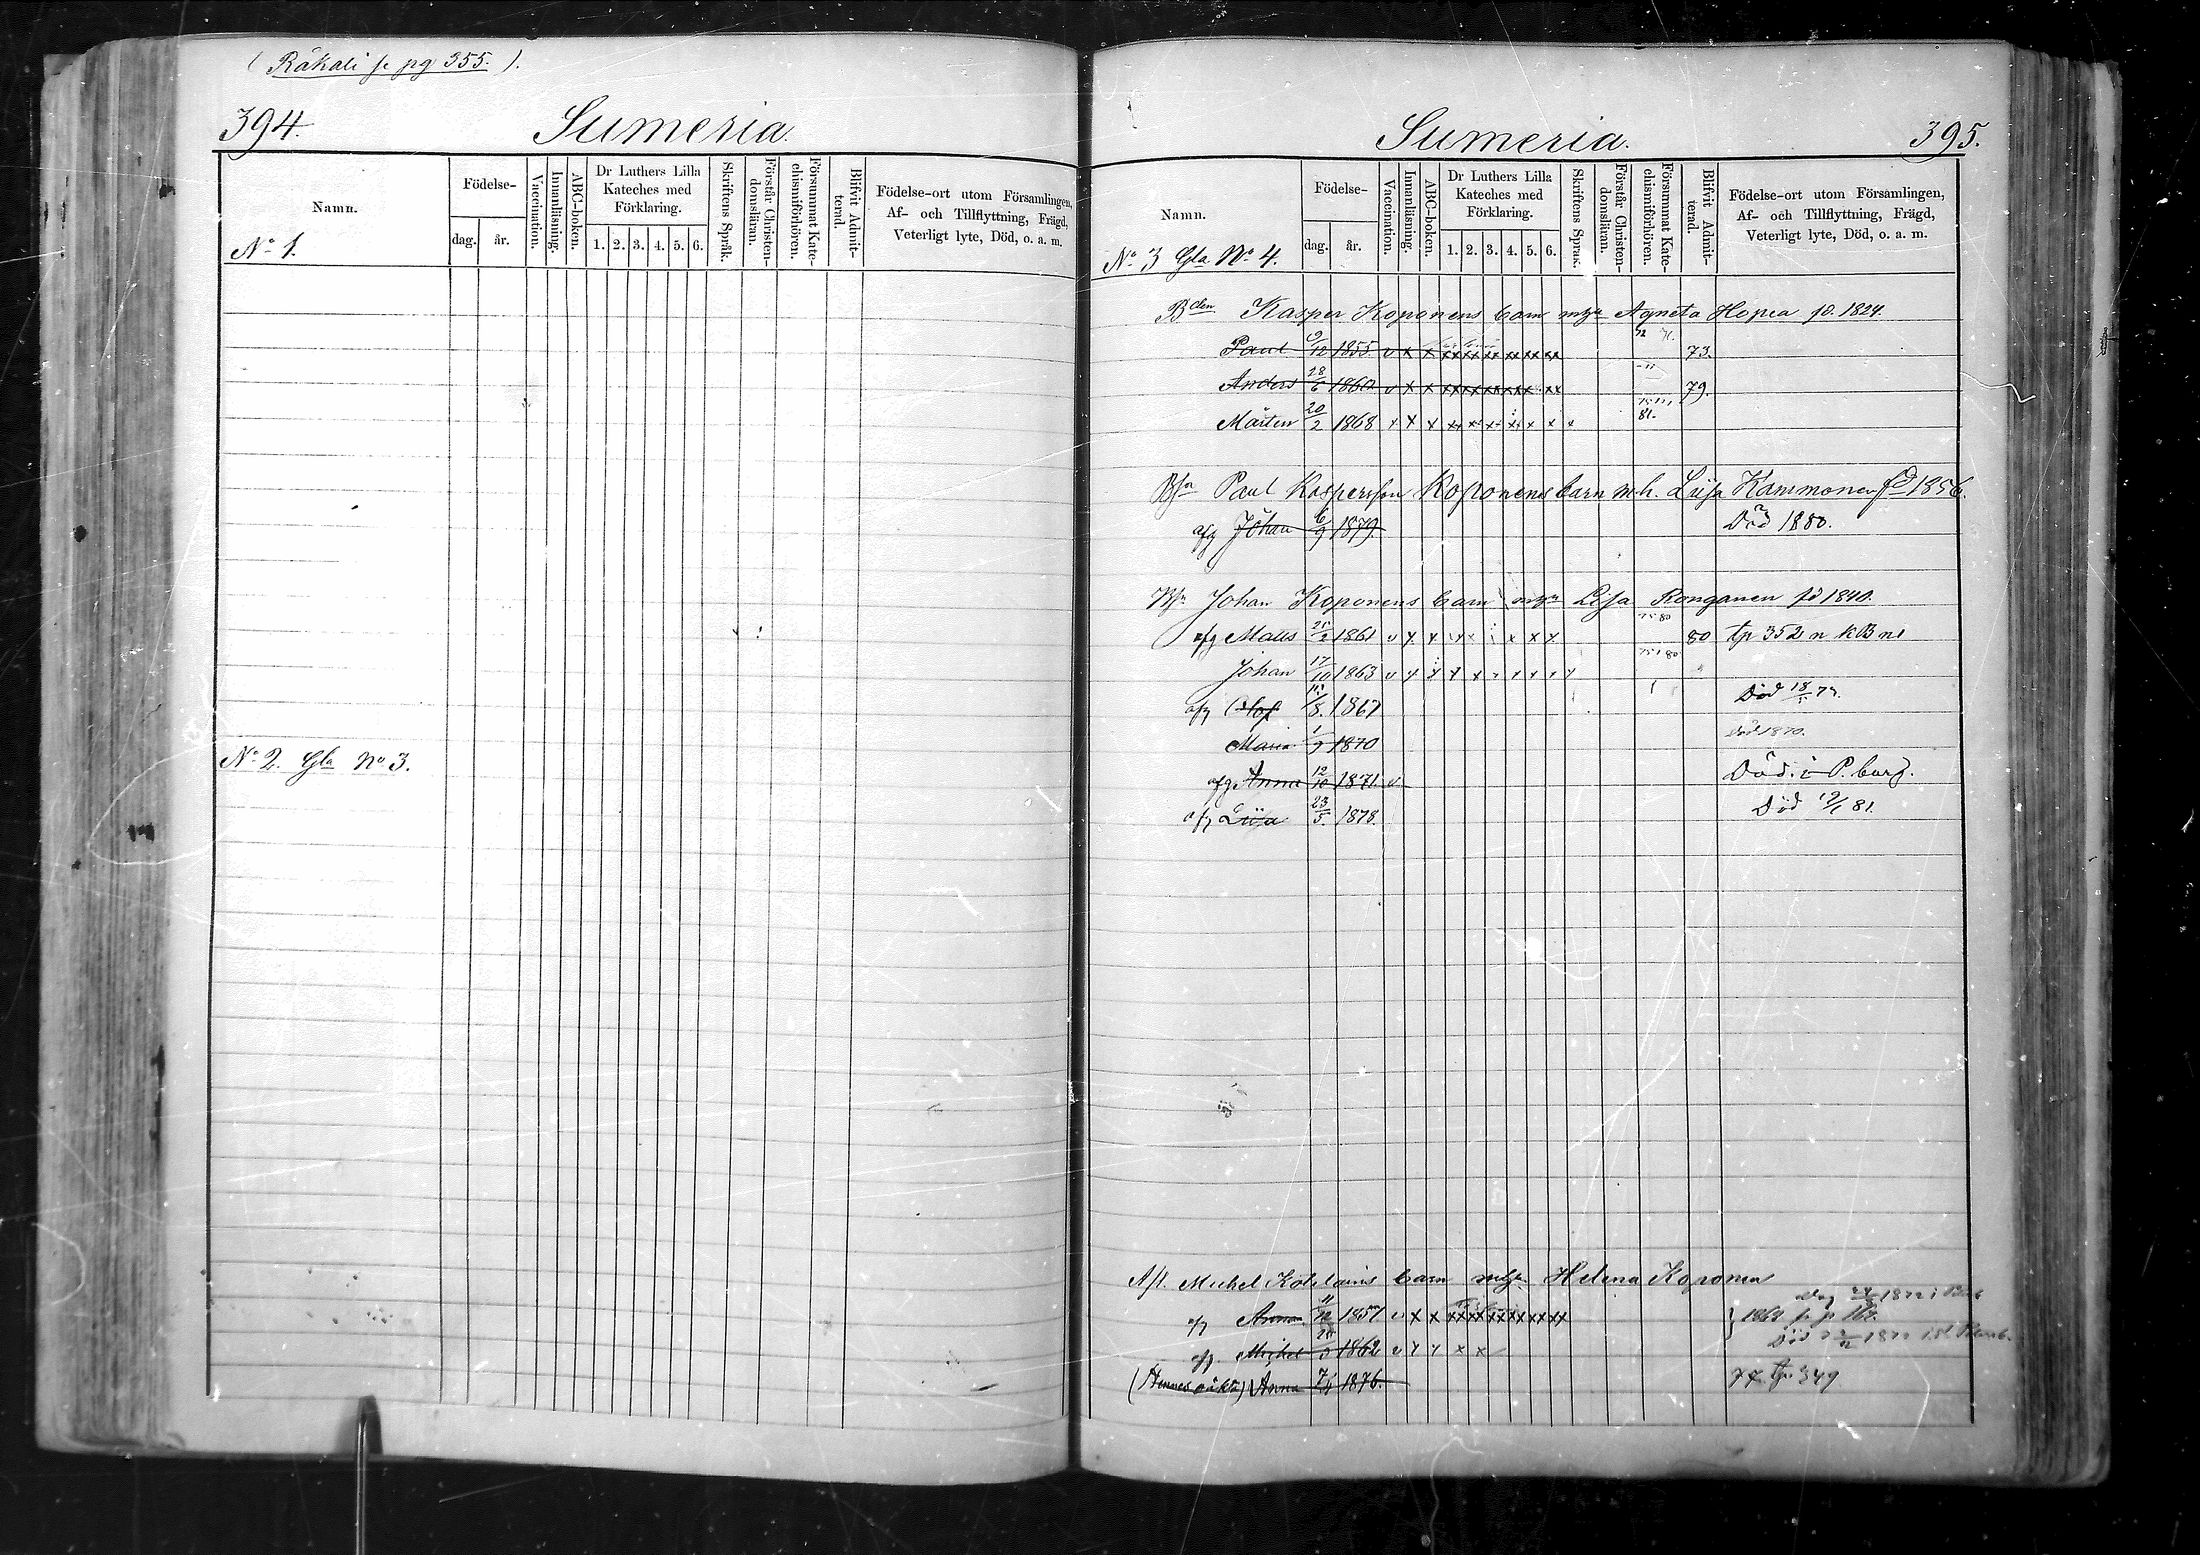 ( Råkali se pg 355. ).
394.
Sumeria.
Namn.
Födelse-
dag.
år.
Vaccination.
Innanläsning.
ABC-boken.
Dr Luthers Lilla
Kateches med
Förklaring.
1. 2. 3. 4. 5. 6.
Skriftens Språk.
Förstår Christen-
domsläran.
Försummat Kate-
chismiförhören.
Blifvit Admit-
terad.
Födelse-ort utom Församlingen,
Af- och Tillflyttning, Frägd,
Veterligt lyte, Död, o. a. m.
No 1.
No 2. Gla No 3.
Sumeria.
395.
Namn.
Födelse-
dag.
år.
Vaccination.
Innanläsning.
ABC-boken.
Dr Luthers Lilla
Kateches med
Förklaring.
1. 2. 3. 4. 5. 6.
Skriftens Språk.
Förstår Christen-
domsläran.
Försummat Kate-
chismiförhören.
Blifvit Admit-
terad.
Födelse-ort utom Församlingen,
Af- och Tillflyttning, Frägd,
Veterligt lyte, Död, o. a. m.
No 3 Gla No 4.
Bden Kasper Koponens barn Agneta Hopea fd. 1824.
Paul 9/12 1855 v x x xx xx xx xx xx xx 73.
Anders 28/6 1860 v x x xx xx xx xx xx 79.
Mårten 20/2 1868 81.
Paul Kaspersson Koponens barn m.h. Liisa Kammonen fd 1856
afg Johan 6/9 1879. Död 1880.
Johan Koponens barn Lisa Ronganen fd 1840.
afg Matts 1861 80 tp 352 n KB n1
Johan 17/10 1863
afg Olof 1867 Död
Maria 1/9 1870 död 1870.
afg Anna 12/10 1871. v Död. i P.burg.
afg Liisa 23/5. 1878. Död 81.
Michel barn Helena Koponen
afg 1857 v x x xx xx xx xx xx xx
afg. Michel 1862 v
Anna 1876. tp. 349